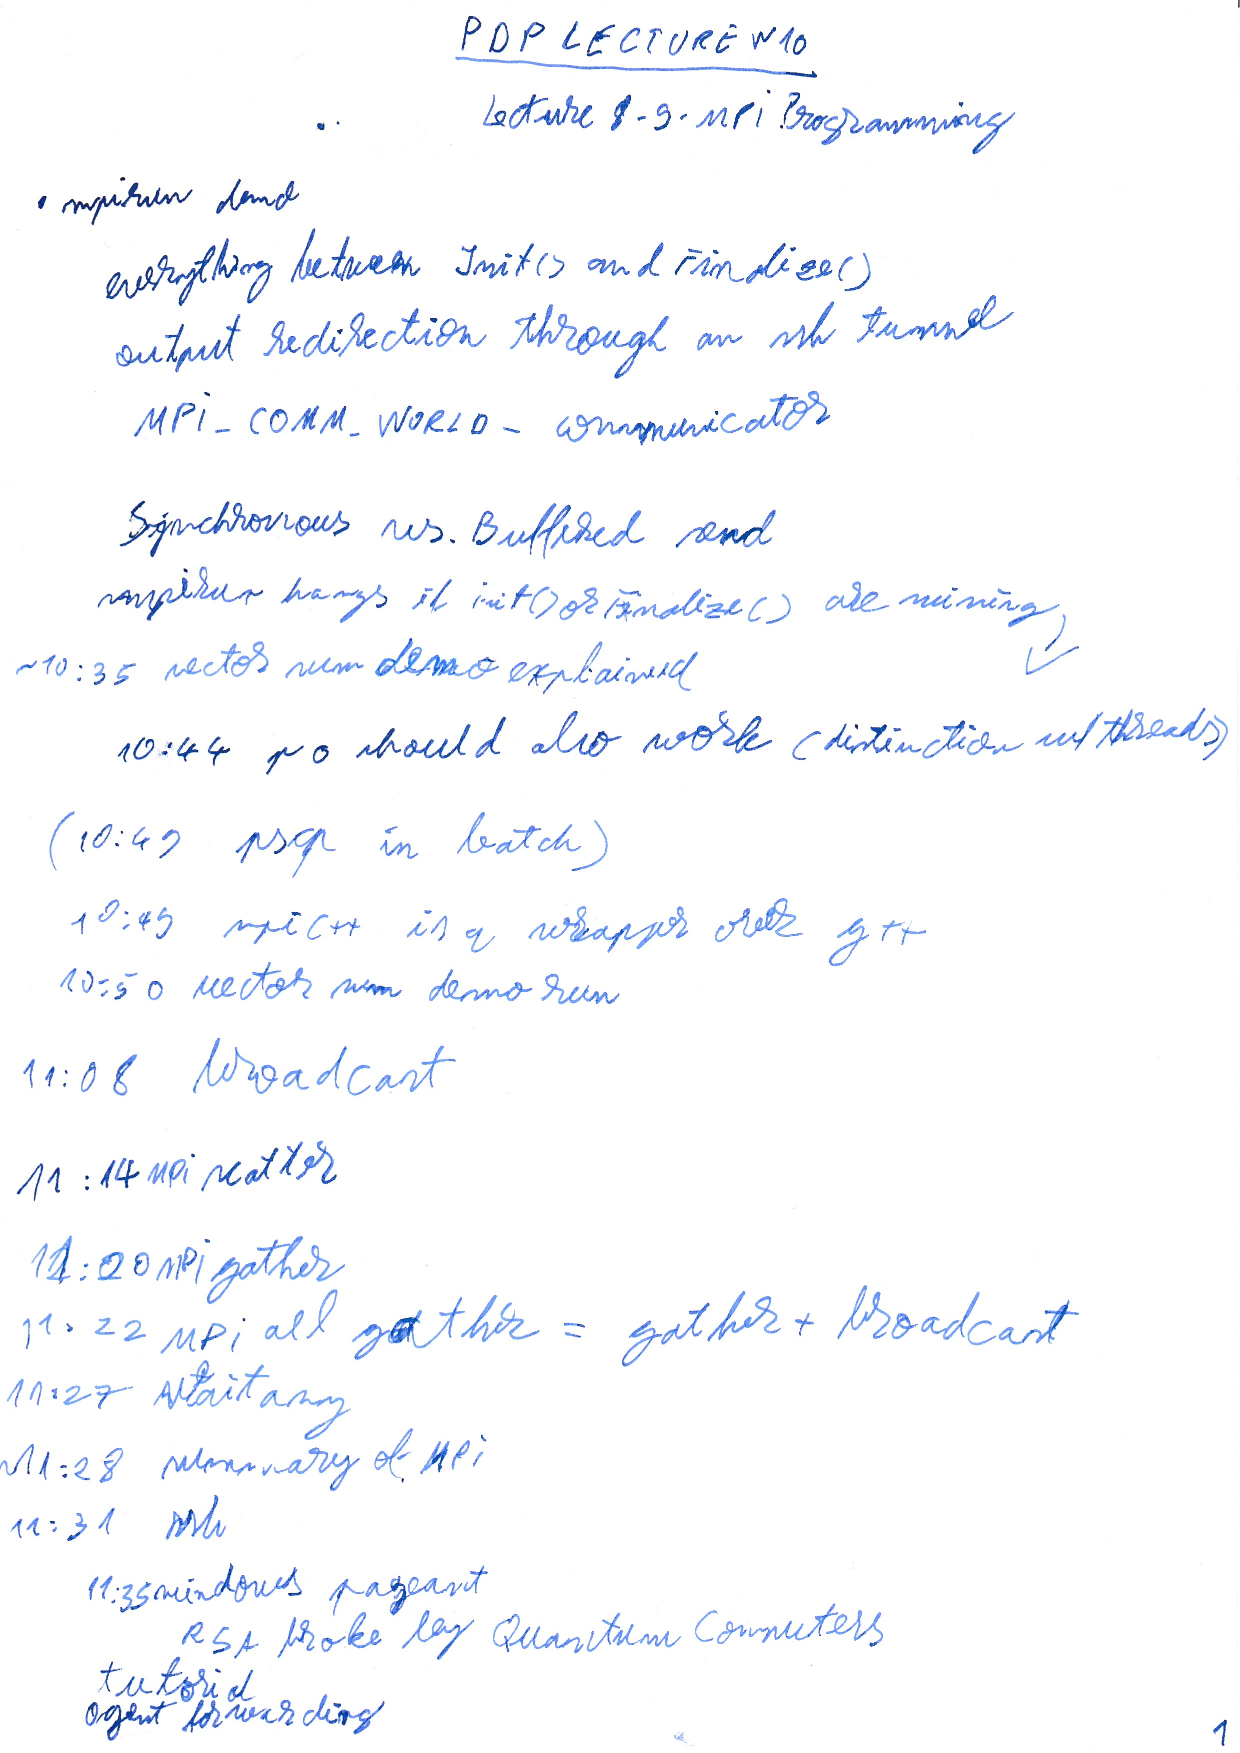 PDP LECTURE N10
Lecture 8-9- MPi Programming
• mpirun demo
everything between Init() and Finalize()
output redirection through an ssh tunnel
MPi_COMM_WORLD - communicator
Synchronous vs. Buffered send
mpirun hangs if init() or Finalize() are missing
~10:35 vector sum demo explained
10:44 p0 should also work (distinction w/ threads)
(10:49 pscp in batch)
10:49 mpic++ is a wrapper over g++
10:50 vector sum demo run
11:08 broadcast
11:14 MPi scatter
11:20 MPi gather
11:22 MPi all gather = gather + broadcast
11:27 Waitany
~11:28 summary of MPi
11:31 ssh
11:35 windows pageant
RSA broke by Quantum Computers
tutorial
agent forwarding
1